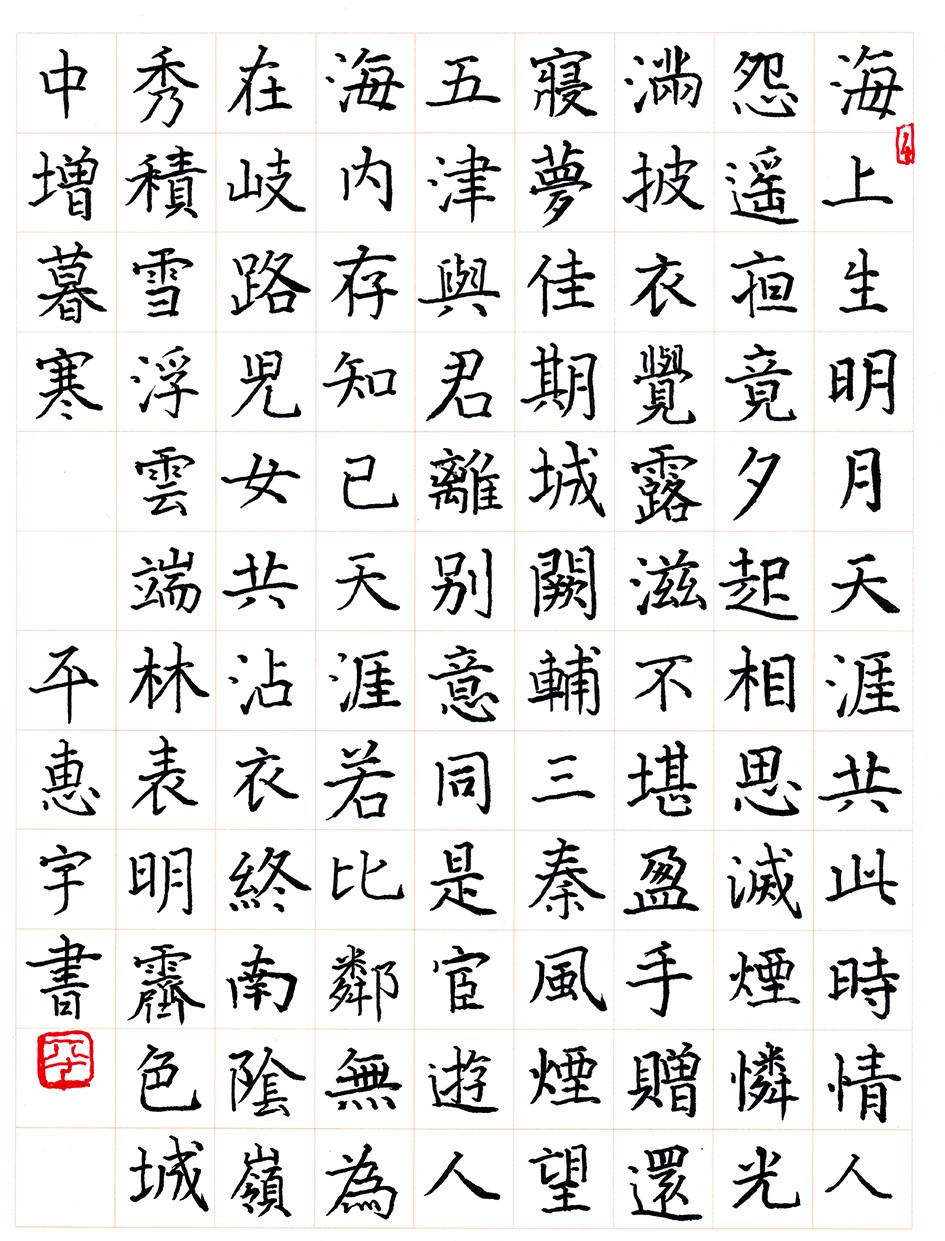 海上生明月天涯共此時情人
怨遙亱竟夕起相思滅煙憐光
滿披衣覺露滋不堪盈手贈還
寢夢佳期城闕輔三秦風煙望
五津與君離別意同是宦遊人
海內存知己天涯若比鄰無為
在岐路兒女共沾衣終南陰嶺
秀積雪浮雲端林表明霽色城
中增暮寒 平惠字書